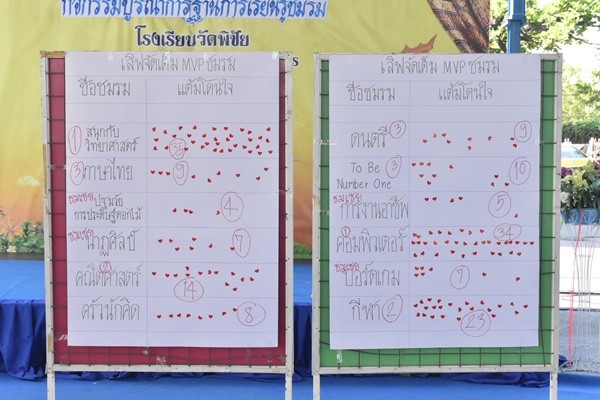 กิจกรรมบูรณาการฐานการเรียนรู้ชมรม
โรงเรียนวัดพิชัย
เสิฟจัดเต็ม MVP ชมรม
ชื่อชมรม แต้มโดนใจ
① สนุกกับ
วิทยาศาสตร์
③ ภาษาไทย 9
ชมเชย
การประดิษฐ์ดอกไม้ 4
ชมเชย นาฏศิลป์ 7
คณิตศาสตร์ 14
ครัวนักคิด 8
เสิฟจัดเต็ม MVP ชมรม
ชื่อชมรม แต้มโดนใจ
ดนตรี ③ 9
To Be ③
Number One 10
ชมเชย การงานอาชีพ 5
① คอมพิวเตอร์ 34
ชมเชย บอร์ดเกม 7
กีฬา ② 23